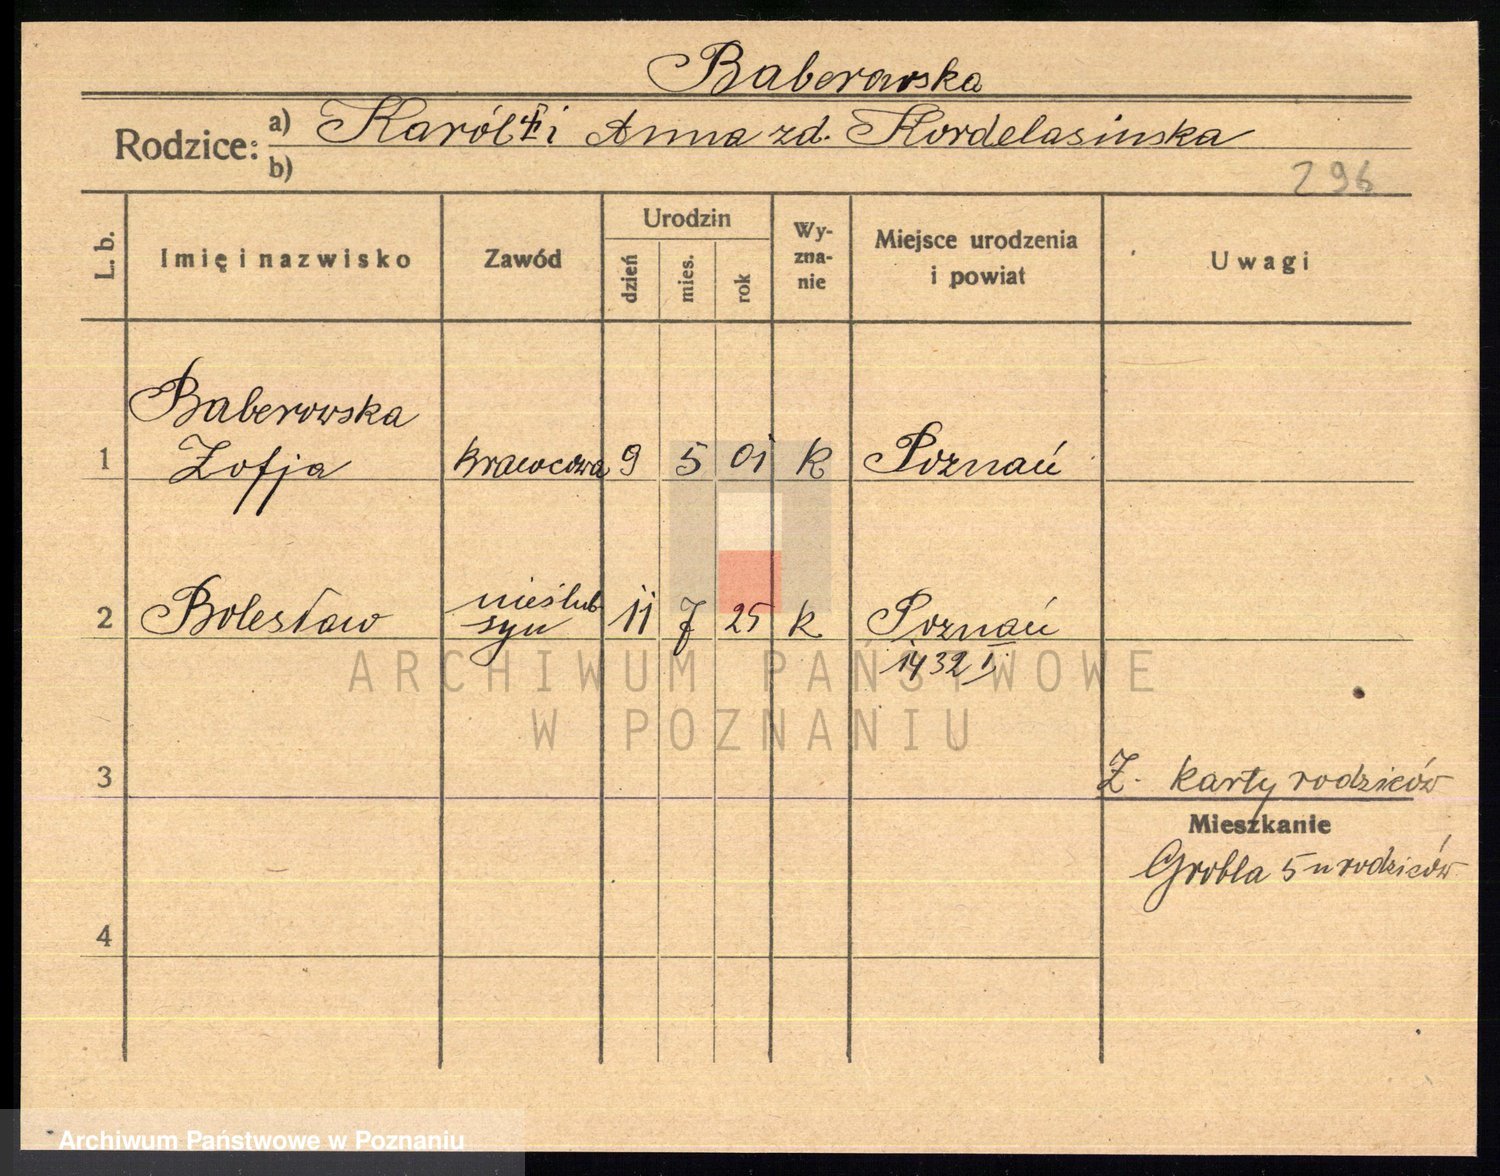 Baberowska
Rodzice: a) Karól i Anna zd. Kordelasinska
b)
296
L. b. Imię i nazwisko Zawód Urodzin dzień mies. rok Wy-zna-nie Miejsce urodzenia i powiat Uwagi
Baberowska
1 Zofja krawcowa 9 5 01 k Poznań
nieślub
2 Bolesław syn 11 7 25 k Poznań
1432 I
ARCHIWUM PAŃSTWOWE
W POZNANIU
3 Z. karty rodziców
Mieszkanie
Grobla 5 u rodziców
4
Archiwum Państwowe w Poznaniu